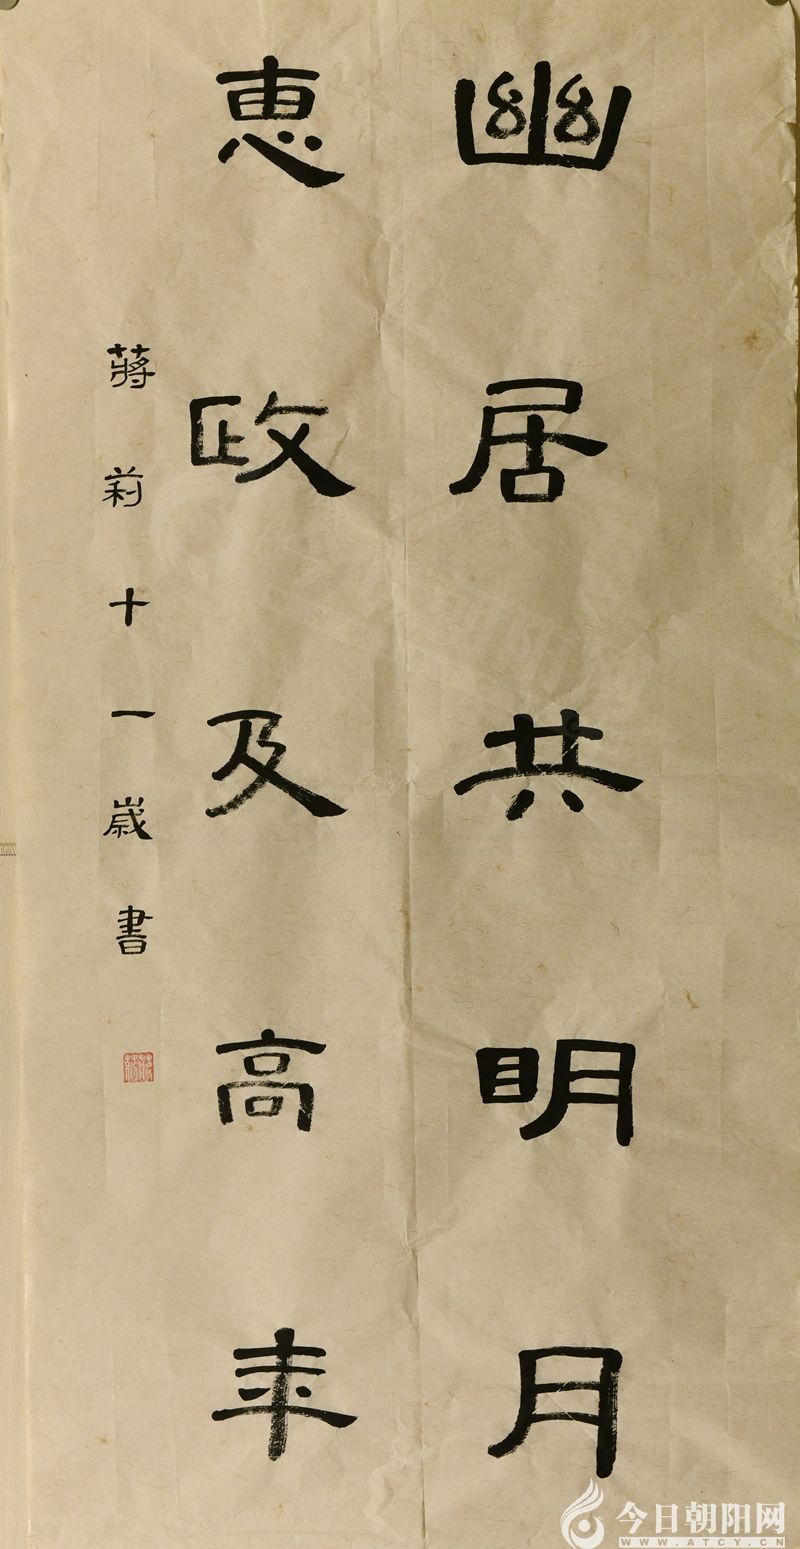 幽居共明月
惠政及高年
蔣莉十一歲書
蔣莉
今日朝阳网
WWW.ATCY.CN